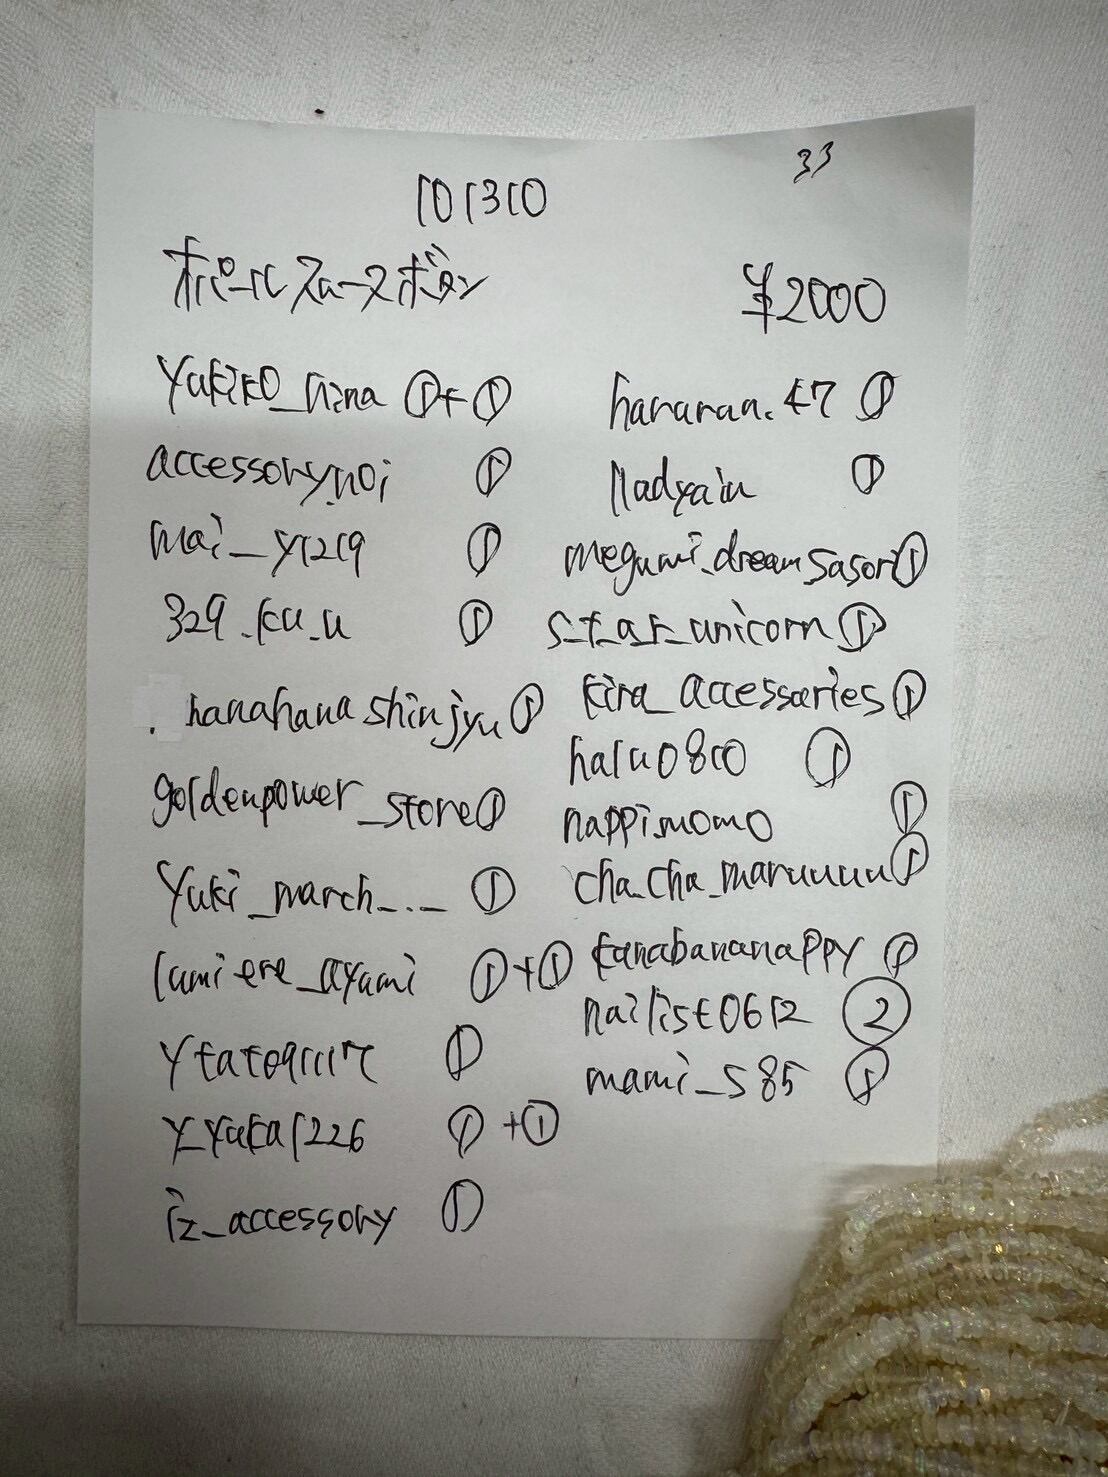 33
101310
オパールスムースボタン
¥2000
yukiko_hina ①+①
accessorynoi ①
mai_y1219 ①
329.ku.u ①
.hanahanashinjyu ①
goldenpower_store ①
yuki_march_._ ①
lumiere_ayami ①+①
①
y.yuka1226 ①+①
iz_accessory ①
hanaran.47 ①
lladyain ①
megumi.dreamsasori ①
s_t_a_r_unicorn ①
kira_accessaries ①
halu0810 ①
nappi.momo ①
cha.cha_maruuuu ①
kanabananappy ①
nailist0612 ②
mami_s85 ①